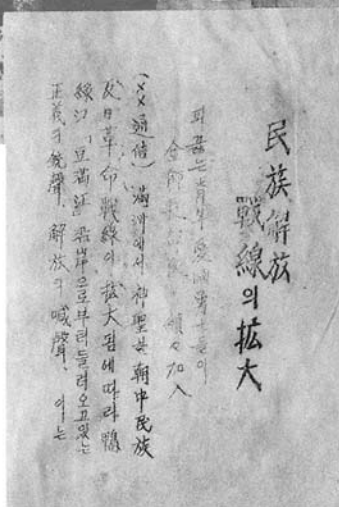 民族解放
戰線의拡大
피끓는青年愛國者들이
續々加入
(××通信) 滿洲에서 神聖한 朝中民族
反日革命戰線이 拡大됨에따라 鴨
綠江、豆滿江沿岸으로부터들려오고있는
正義의銃聲、解放의喊聲、이는